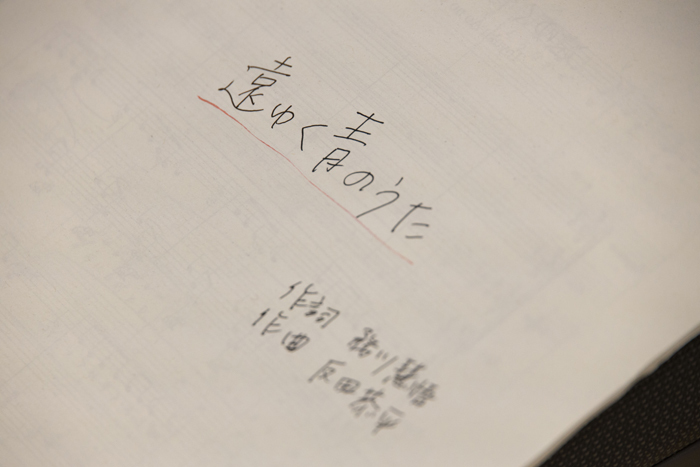 遠ゆく青のうた
作詞
作曲 反田恭平